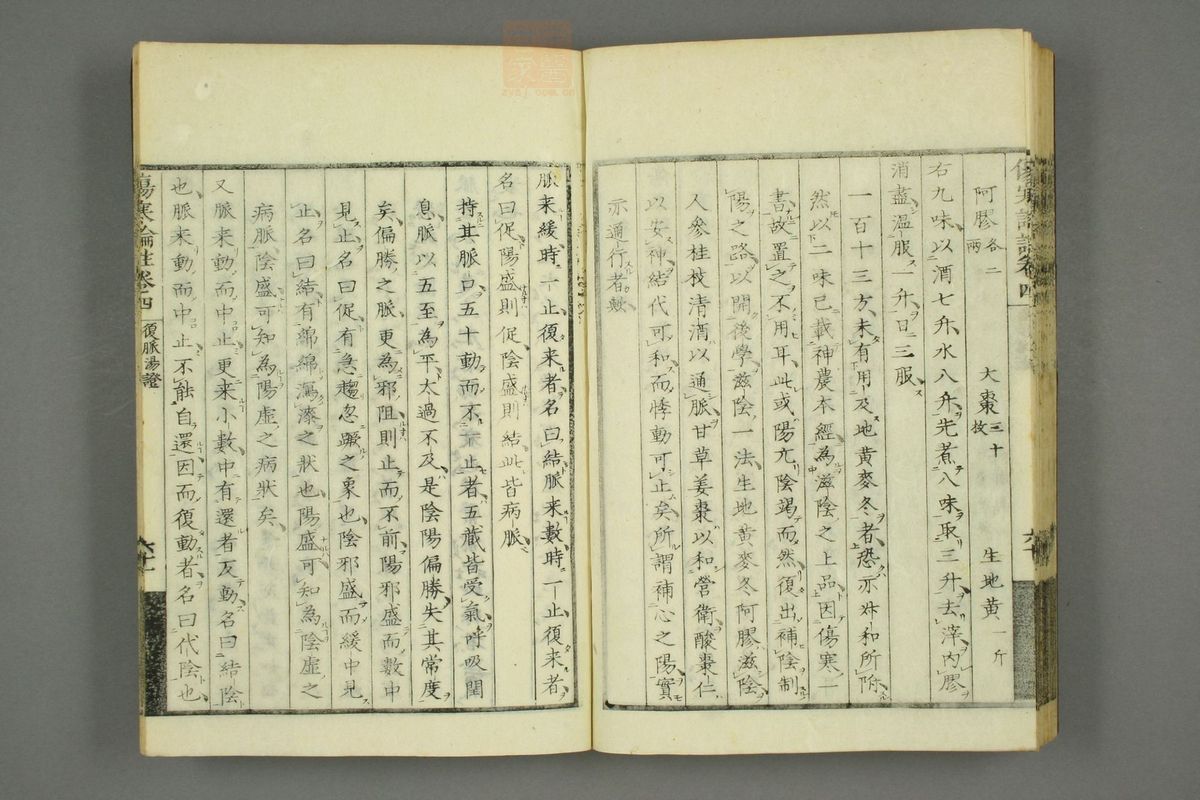 阿膠各二兩　大棗三十枚　生地黃一斤
右九味以酒七升水八升先煮八味取三升去滓內膠
消盡溫服一升日三服
一百十三方未有用及地黃麥冬者恐亦叔和所附
然以二味已載神農本經為滋陰之上品因傷寒一
書故置之不用耳此或陽亢陰竭而然復出補陰制
陽之路以開後學滋陰一法生地黃麥冬阿膠滋陰
人參桂枝清酒以通脈甘草姜棗以和營衛酸棗仁
以安神結代可和而悸動可止矣所謂補心之陽實
亦通行者歟
脈来緩時一止復来者名曰結脈来數時一止復来者
名曰促陽盛則促陰盛則結此皆病脈
持其脈口五十動而不一止者五藏皆受氣呼吸閏
息脈以五至為平太過不及是陰陽偏勝失其常度
矣偏勝之脈更為邪阻則止而不前陽邪盛而數中
見止名曰促有急趨忽蹶之象也陰邪盛而緩中見
止名曰結有綿綿瀉漆之狀也陽盛可知為陰虛之
病脈陰盛可知為陽虛之病狀矣
又脈来動而中止更来小數中有還者反動名曰結陰
也脈来動而中止不能自還因而復動者名曰代陰也
傷寒論註卷四　復脈湯證　六十一